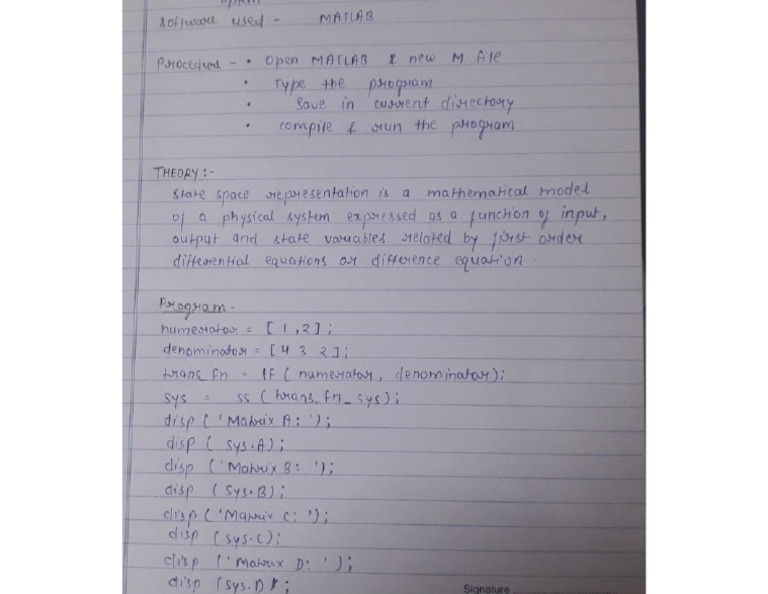 system
software used - MATLAB
Procedure - • Open MATLAB & new M file
• Type the program
• Save in current directory
• compile & run the program
THEORY :-
State space representation is a mathematical model
of a physical system expressed as a function of input,
output and state variables related by first order
differential equations or difference equation.
Program -
numerator = [ 1 , 2 ] ;
denominator = [ 4 3 2 ] ;
trans_fn = tf ( numerator , denominator ) ;
sys = ss ( trans_fn_sys ) ;
disp ( ' Matrix A : ' ) ;
disp ( sys.A ) ;
disp ( ' Matrix B : ' ) ;
disp ( sys.B ) ;
disp ( ' Matrix C : ' ) ;
disp ( sys.C ) ;
disp ( ' Matrix D : ' ) ;
disp ( sys.D ) ;
Signature